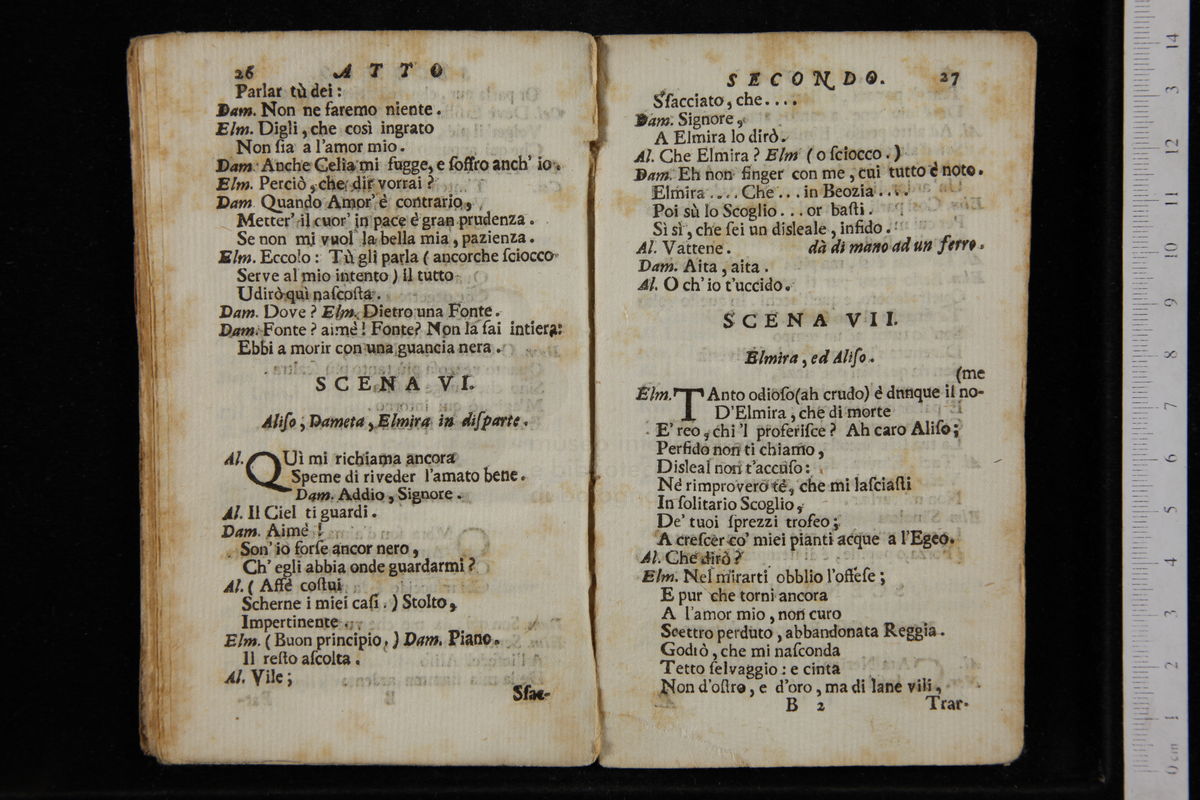 26 ATTO
Parlar tù dei:
Dam. Non ne faremo niente.
Elm. Digli, che così ingrato
Non ſia a l'amor mio.
Dam. Anche Celia mi fugge, e ſoffro anch' io.
Elm. Perciò, che dir vorrai?
Dam. Quando Amor' è contrario,
Metter' il cuor' in pace è gran prudenza.
Se non mi vuol la bella mia, pazienza.
Elm. Eccolo: Tù gli parla (ancorche ſciocco
Serve al mio intento) il tutto
Udirò quì naſcoſta.
Dam. Dove? Elm. Dietro una Fonte.
Dam. Fonte? aimè! Fonte? Non la ſai intiera:
Ebbi a morir con una guancia nera.
SCENA VI.
Aliſo, Dameta, Elmira in diſparte.
Al. QUì mi richiama ancora
Speme di riveder l'amato bene.
Dam. Addio, Signore.
Al. Il Ciel ti guardi.
Dam. Aimè!
Son' io forſe ancor nero,
Ch' egli abbia onde guardarmi?
Al. (Affè coſtui
Scherne i miei caſi.) Stolto,
Impertinente.
Elm. (Buon principio.) Dam. Piano.
Il reſto aſcolta.
Al. Vile;
Sfac-
SECONDO. 27
Sfacciato, che....
Dam. Signore,
A Elmira lo dirò.
Al. Che Elmira? Elm (o ſciocco.)
Dam. Eh non finger con me, cui tutto è noto.
Elmira.... Che... in Beozia....
Poi sù lo Scoglio... or baſti.
Sì sì, che ſei un disleale, infido.
Al. Vattene. dà di mano ad un ferro.
Dam. Aita, aita.
Al. O ch' io t'uccido.
SCENA VII.
Elmira, ed Aliſo.
(me
Elm. TAnto odioſo(ah crudo) è dnnque il no-
D'Elmira, che di morte
E' reo, chi 'l proferiſce? Ah caro Aliſo;
Perfido non ti chiamo,
Disleal non t'accuſo:
Nè rimprovero tè, che mi laſciaſti
In ſolitario Scoglio,
De' tuoi ſprezzi trofeo;
A creſcer co' miei pianti acque a l'Egeo.
Al. Che dirò?
Elm. Nel mirarti obblio l'offeſe;
E pur che torni ancora
A l'amor mio, non curo
Scettro perduto, abbandonata Reggia.
Godrò, che mi naſconda
Tetto ſelvaggio: e cinta
Non d'oſtro, e d'oro, ma di lane vili,
B 2 Trar-